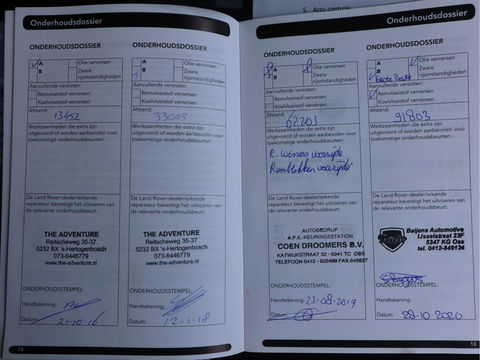 5. Accu controle
Onderhoudsdossier
ONDERHOUDSDOSSIER
A
B
Olie verversen
Zware rijomstandigheden
Aanvullende vereisten:
Remvloeistof verversen
Koelvloeistof verversen
Afstand:
13452
Werkzaamheden die extra zijn
uitgevoerd of worden aanbevolen voor
toekomstige onderhoudsbeurten:
De Land Rover-dealer/erkende
reparateur bevestigt het uitvoeren van
de relevante onderhoudsbeurt:
THE ADVENTURE
Reitscheweg 35-37
5232 BX 's-Hertogenbosch
073-6446779
www.the-adventure.nl
ONDERHOUDSSTEMPEL:
Handtekening:
Datum: 21-10-16
12
ONDERHOUDSDOSSIER
A
B
Olie verversen
Zware
rijomstandigheden
Aanvullende vereisten:
Remvloeistof verversen
Koelvloeistof verversen
Afstand:
33005
Werkzaamheden die extra zijn
uitgevoerd of worden aanbevolen voor
toekomstige onderhoudsbeurten:
De Land Rover-dealer/erkende
reparateur bevestigt het uitvoeren van
de relevante onderhoudsbeurt:
THE ADVENTURE
Reitscheweg 35-37
5232 BX 's-Hertogenbosch
073-6446779
www.the-adventure.nl
ONDERHOUDSSTEMPEL:
Handtekening:
Datum: 12-1-18
Onderhoudsdossier
ONDERHOUDSDOSSIER
Olie verversen
Zware
rijomstandigheden
Aanvullende vereisten:
Remvloeistof verversen
Koelvloeistof verversen
Afstand:
62203
Werkzaamheden die extra zijn
uitgevoerd of worden aanbevolen voor
toekomstige onderhoudsbeurten:
R. wissers voorzijde
Remblokken voorzijde
De Land Rover-dealer/erkende
reparateur bevestigt het uitvoeren van
de relevante onderhoudsbeurt:
AUTOBEDRIJF
A.P.K.-KEURINGSSTATION
COEN DROOMERS B.V.
KATWIJKSTRAAT 32 - 5341 TC OSS
TELEFOON 0412 - 622489 FAX 645627
ONDERHOUDSSTEMPEL:
Handtekening: 23-08-2019
Datum:
ONDERHOUDSDOSSIER
A
Olie verversen
Zware
rijomstandigheden
Grote Beurt
Aanvullende vereisten:
Remvloeistof verversen
Koelvloeistof verversen
Afstand:
91803
Werkzaamheden die extra zijn
uitgevoerd of worden aanbevolen voor
toekomstige onderhoudsbeurten:
De Land Rover-dealer/erkende
reparateur bevestigt het uitvoeren van
de relevante onderhoudsbeurt:
Beijens Automotive
IJsselstraat 23F
5347 KG Oss
tel. 0412-849126
ONDERHOUDSSTEMPEL:
Handtekening:
Datum: 28-10-2020
13